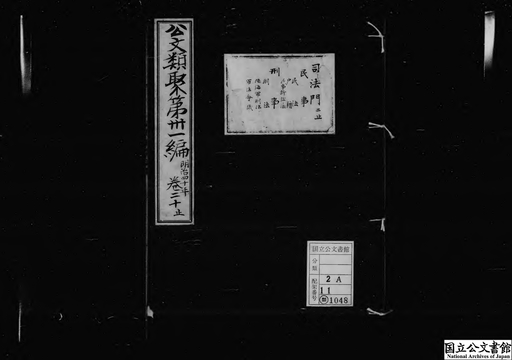 公文類聚第卅一編 明治四十年 巻二十止
司法門二止
民事
民法
戸籍
民事訴訟法
刑事
刑法
陸海軍刑法
軍法会議
国立公文書館
分類
配架番号
2 A
11
1048
国立公文書館
National Archives of Japan